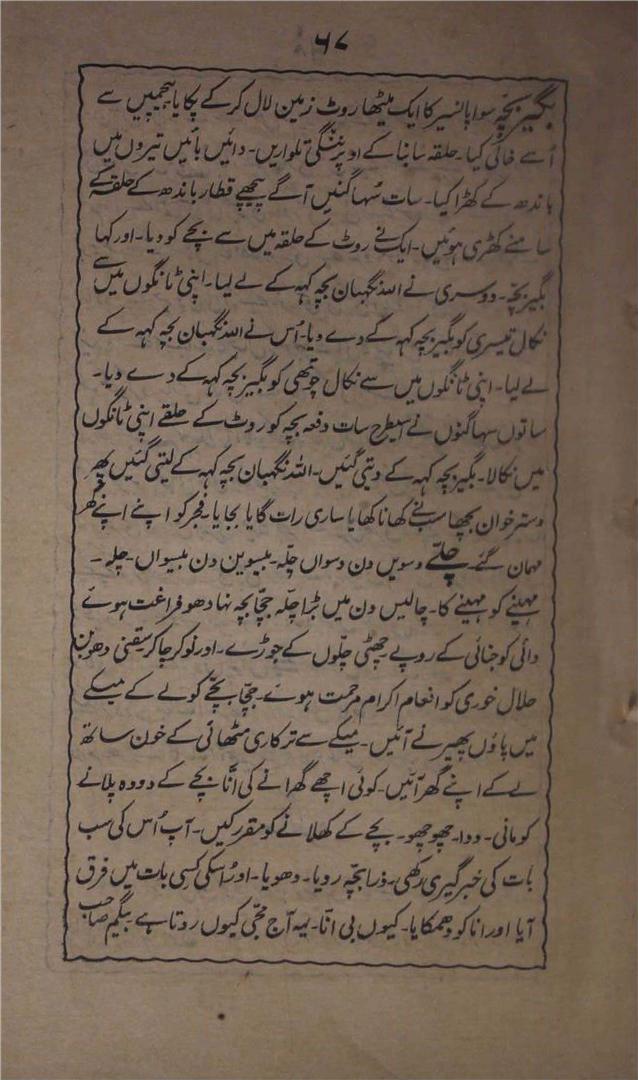 ۶۷
بگیر بچہ سوا پانسیر کا ایک میٹھا روٹ زمین لال کرکے پکایا بیچمیں سے
اُسے خالی کیا۔ حلقہ سا بنا کے اوپر ننگی تلواریں۔ دائیں بائیں تیروں میں
باندھ کے کھڑا کیا۔ سات سُہاگنیں آگے پیچھے قطار باندھ کے حلقہ کے
سامنے کھڑی ہوئیں۔ ایک نے روٹ کے حلقہ میں سے بچے کو دیا۔ اور کہا
بگیر بچہ۔ دوسری نے اللہ نگہبان بچہ کہہ کے لے لیا۔ اپنی ٹانگوں میں سے
نکال تیسری کو بگیر بچہ کہہ کے دے دیا۔ اُس نے اللہ نگہبان بچہ کہہ کے
لے لیا۔ اپنی ٹانگوں میں سے نکال چوتھی کو بگیر بچہ کہہ کے دے دیا۔
ساتوں سہاگنوں نے اسیطرح سات دفعہ بچہ کو روٹ کے حلقے اپنی ٹانگوں
میں نکالا۔ بگیر بچہ کہہ کے دیتی گئیں۔ اللہ نگہبان بچہ کہہ کے لیتی گئیں پھر
دسترخوان بچھا سب نے کھانا کھایا ساری رات گایا بجایا۔ فجر کو اپنے اپنے گھر
مہمان گئے۔ چلّے دسویں دن دسواں چلّہ۔ بیسویں دن بیسواں۔ چلہ۔
مہینے کو مہینے کا۔ چالیس دن میں بڑا چلّہ جچا بچہ نہا دھو فراغت ہوئے
دائی کو جنائی کے روپے چھٹی چلّوں کے جوڑے۔ اور نوکر چاکر سقنی دھوبن
حلال خوری کو انعام اکرام مرحمت ہوئے۔ جچا بچے کو لے کے میکے
میں پاؤں پھیرنے آئیں۔ میکے سے ترکاری مٹھائی کے خوان ساتھ
لے کے اپنے گھر آئیں۔ کوئی اچھے گھرانے کی انّا بچے کے دودہ پلانے
کو مانی۔ ددا۔ چھوچھو۔ بچے کے کھلانے کو مقرر کیں۔ آپ اُس کی سب
بات کی خبرگیری رکھی۔ ذرا بچہ رویا۔ دھویا۔ اور اُسکی کسی بات میں فرق
آیا اور انا کو دھمکایا۔ کیوں بی انّا۔ یہ آج مچّی کیوں روتا ہے بیگم صاحب